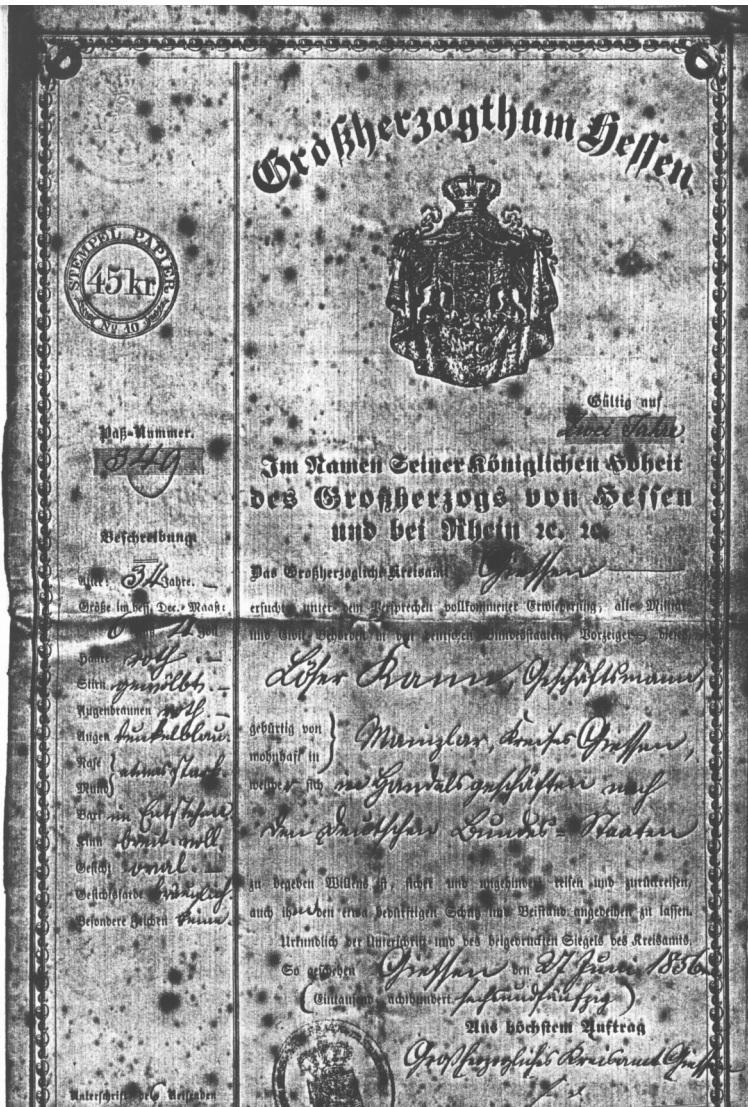 Großherzogthum Hessen
STEMPEL PAPIER.
45 kr.
No 10
Gültig auf
zwei Jahre
Paß-Nummer.
349
Beschreibung
Alter: 34 Jahre.
Größe im hess. Dec.-Maaß:
6 4 Zoll
Haare roth
Stirn gewölbt
Augenbraunen roth
Augen dunkelblau.
Nase
Mund } etwas stark.
Bart im Entstehen
Kinn breit voll
Gesicht oval
Gesichtsfarbe bräunlich
Besondere Zeichen keine.
Unterschrift des Reisenden
Im Namen Seiner Königlichen Hoheit
des Großherzogs von Hessen
und bei Rhein ꝛc. ꝛc.
Das Großherzogliche Kreisamt Giessen
ersucht unter dem Versprechen vollkommener Erwiederung, alle Militär
und Civil-Behörden in den deutschen Bundesstaaten, Vorzeiger dieses
Löser Kann, Geschäftsmann,
gebürtig von
wohnhaft in } Mainzlar, Kreises Giessen,
welcher sich in Handelsgeschäften nach
den deutschen Bundes-Staaten
zu begeben Willens ist, sicher und ungehindert reisen und zurückreisen,
auch ihm den etwa bedürftigen Schutz und Beistand angedeihen zu lassen.
Urkundlich der Unterschrift und des beigedruckten Siegels des Kreisamts.
So geschehen Giessen den 27 Juni 1856
(Eintausend achthundert sechsundfünfzig)
Aus höchstem Auftrag
Großherzogliches Kreisamt Giessen